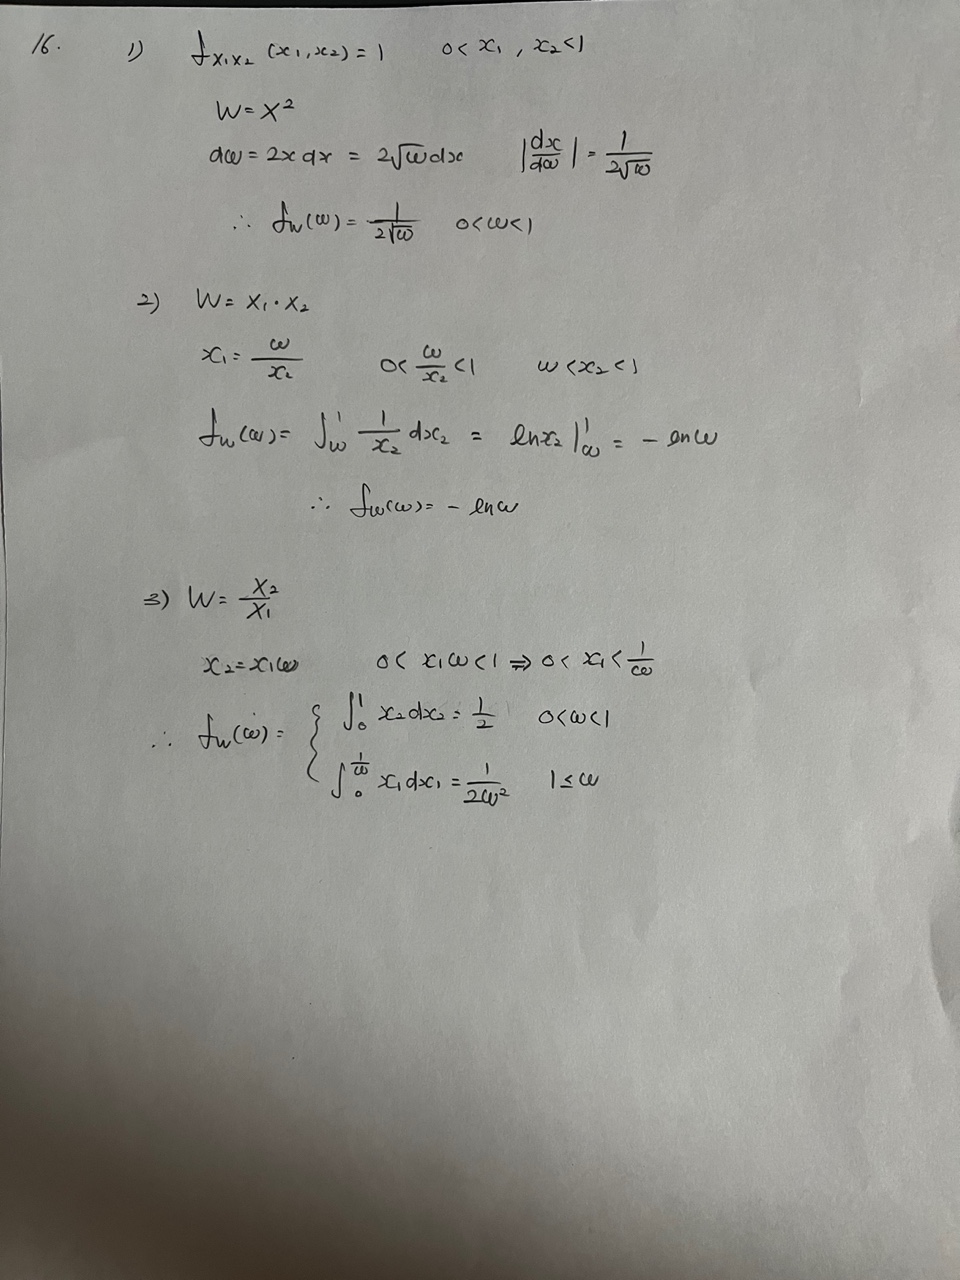 16. 1) f_{X1X2}(x1,x2)=1 0<x1, x2<1
W=X²
dω=2xdx = 2√ω dx |dx/dω| = 1/(2√ω)
∴ f_W(ω)= 1/(2√ω) 0<ω<1
2) W= X1·X2
x1= ω/x2 0< ω/x2 <1 ω<x2<1
f_W(ω)= ∫_ω^1 1/x2 dx2 = lnx2 |_ω^1 = - lnω
∴ f_W(ω)= - lnω
3) W= X2/X1
x2=x1ω 0< x1ω<1 ⇒ 0< x1< 1/ω
∴ f_W(ω)= { ∫_0^1 x2dx2= 1/2 0<ω<1
∫_0^{1/ω} x1dx1 = 1/(2ω²) 1≤ω